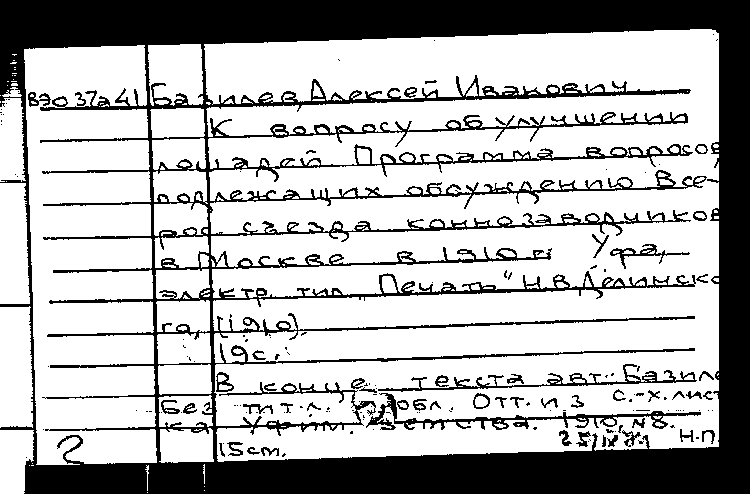 В20 37а41 Базилев, Алексей Иванович.
К вопросу об улучшении
лошадей. Программа вопросов,
подлежащих обсуждению Все-
рос. съезда коннозаводчиков
в Москве в 1910 г. Уфа,
электр. тип. „Печать" Н.В. Делинско-
го, [1910].
19 с.
В конце текста авт.: Базиле
Без тит. л. обл. Отт. из с.-х. лист
ка Уфим. земства. 1910, №8.
2 15 cm. 25/IX 71 Н.П.